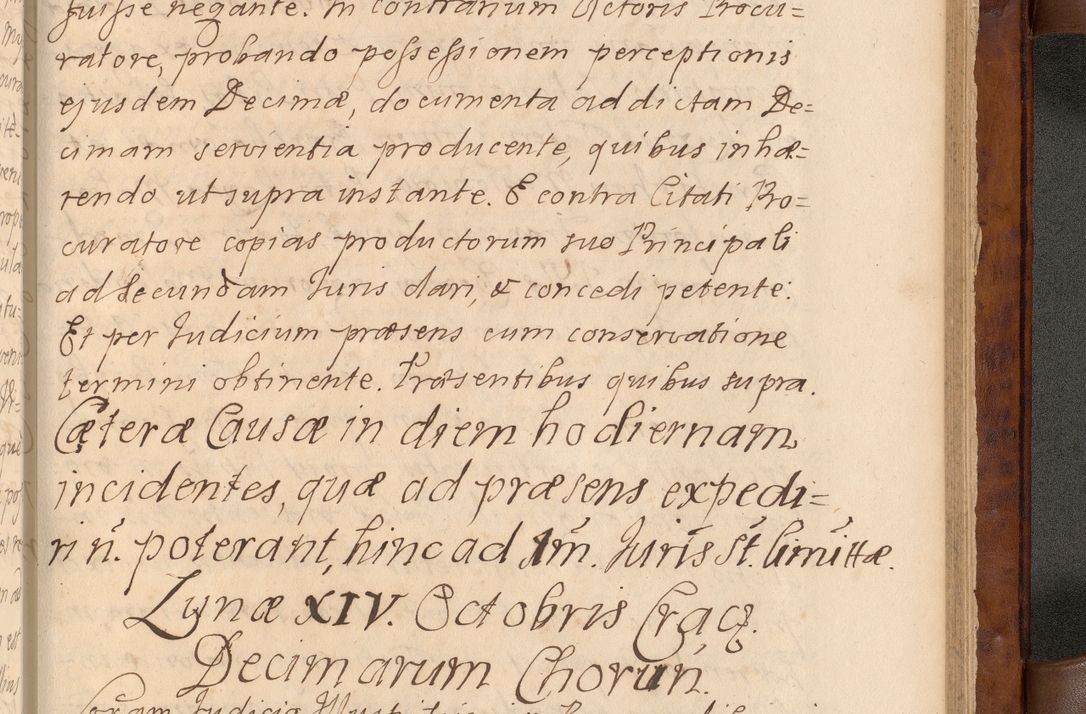 fuisse negante. In contrarium Actoris Procu=
ratore, probando possessionem perceptionis
ejusdem Decimæ, documenta ad dictam De=
cimam servientia producente, quibus inhæ=
rendo ut supra instante. E contra Citati Pro=
curatore copias productorum suo Principali
ad Secundam Juris dari, & concedi petente.
Et per Judicium præsens cum conservatione
termini obtinente. Præsentibus quibus supra.
Cæteræ Causæ in diem hodiernam
incidentes, quæ ad præsens expedi=
ri ñ. poterant, hinc ad 1m̃. Juris St. limittæ.
Lunæ XIV. Octobris Crac.
Decimarum Chorun.
Coram Judicio